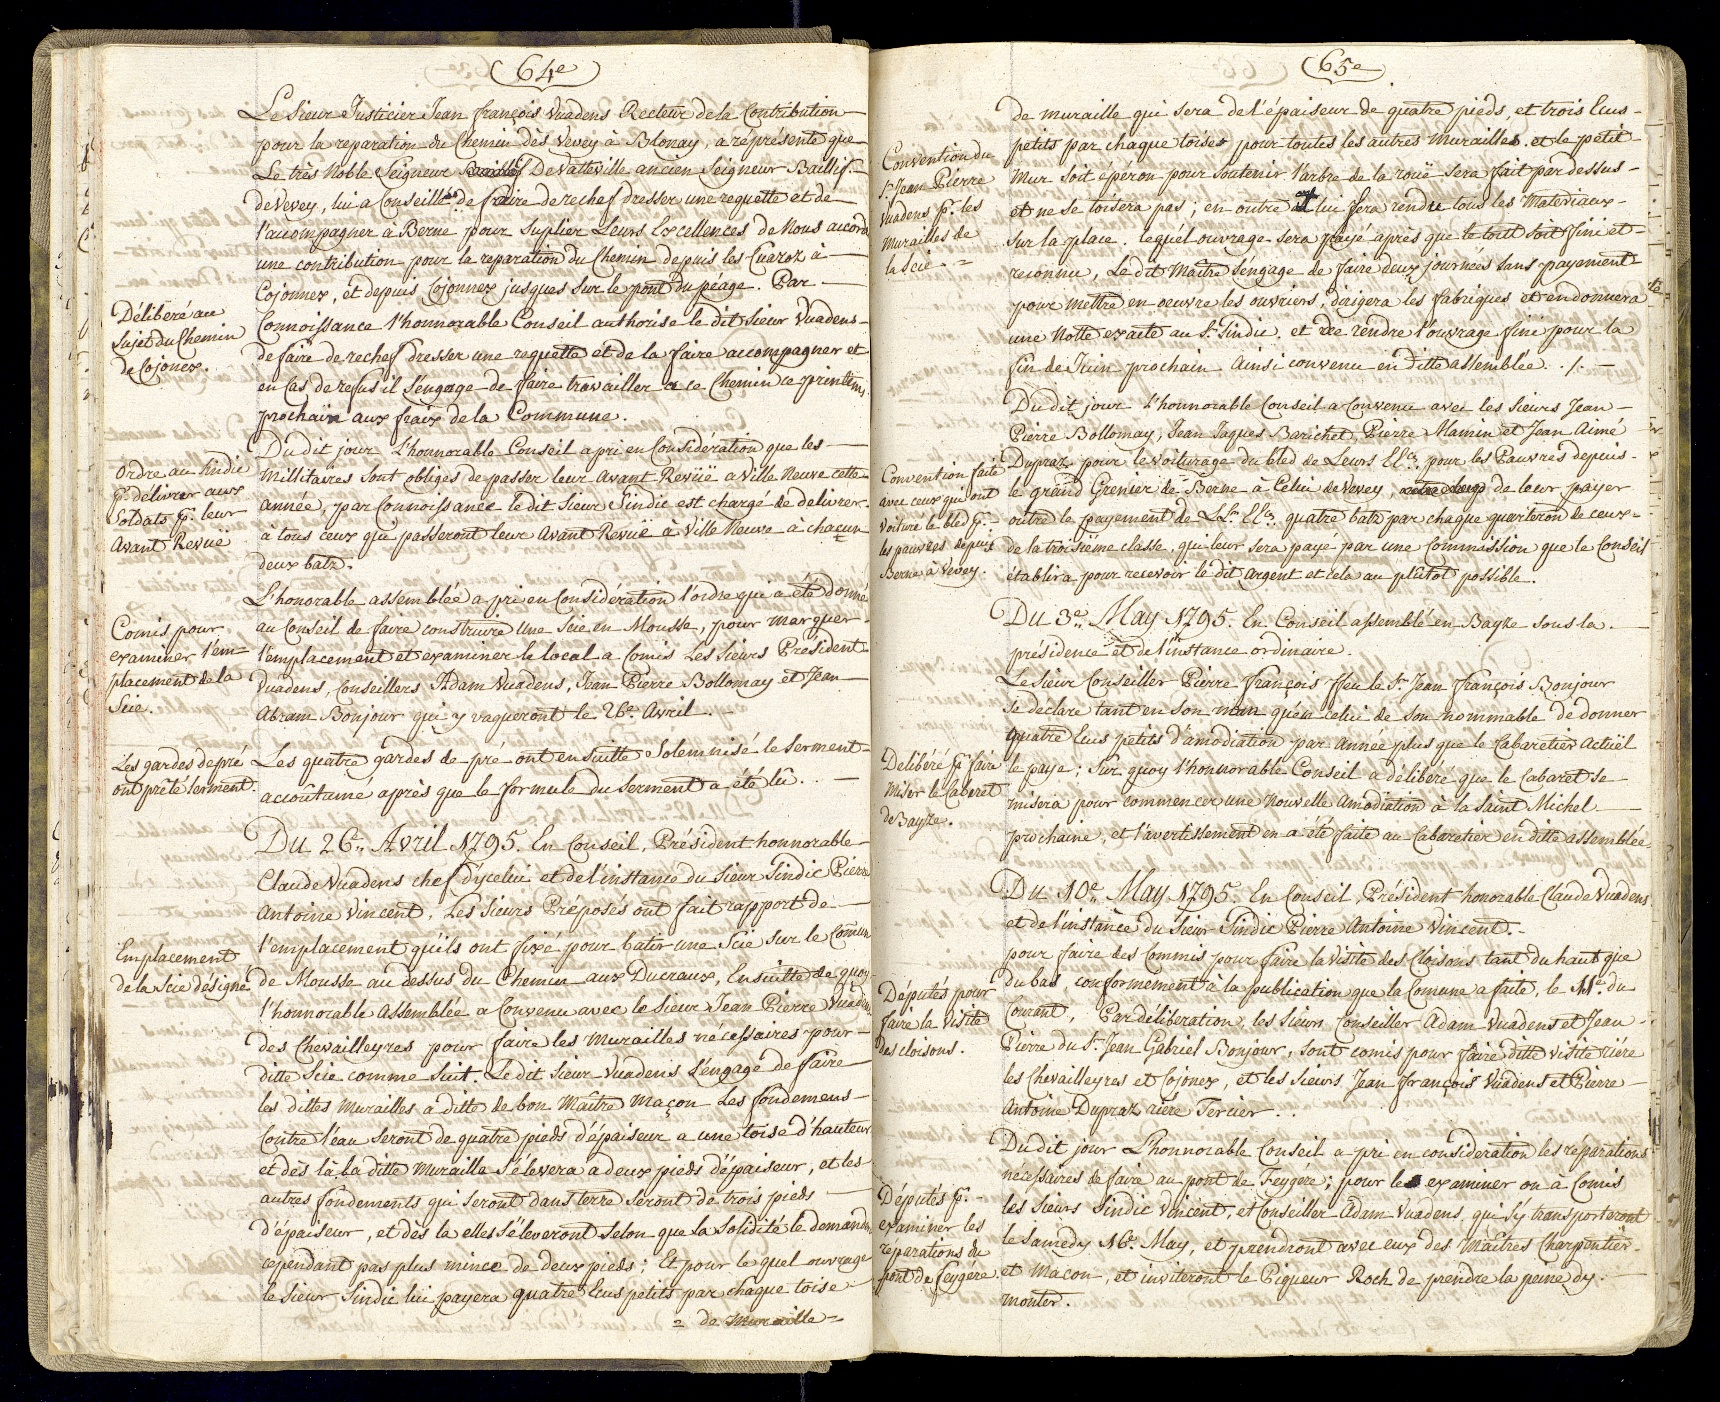 64e
Le Sieur Justicier Jean françois Vuadens Recteur de la Contribution
pour la reparation du Chemin dès Vevey à Blonay, a réprésenté que
Le très Noble Seigneur De Vatteville ancien Seigneur Baillif
de Vevey, lui a Conseillé de faire de rechef dresser une requette et de
l'accompagner à Berne pour Suplier Leurs Excellences de Nous accord
une contribution pour la reparation du Chemin depuis les Cuaroz à
Cojonnex, et depuis Cojonnex jusques sur le pont du péage. Par
Délibéré au
Sujet du Chemin
de Cojonex.
Connoissance l'honnorable Conseil authorise le dit Sieur Vuadens
de faire de rechef dresser une requette et de la faire accompagner et
en Cas de refus il S'engage de faire travailler a ce Chemin ce printems
prochain aux fraix de la Commune.
Ordre au Sindic
pr délivrer aux
Soldats pr leur
Avant Revuë
Du dit jour L'honnorable Conseil a pri en Considération que les
Millitaires Sont obligés de passer leur Avant Revüe a Ville Neuve cette
année, par Connoissance le dit Sieur Sindic est chargé de delivrer
à tous ceux qui passeront leur Avant Revuë à Ville Neuve à chacun
deux batz.
Comis pour
examiner l'em
placement de la
Scie.
L'honorable assemblée a pri en Considération l'ordre qui a été donné
au Conseil de faire construire Une Scie en Mousse, pour marquer
l'emplacement et examiner le local a Comis Les Sieurs Président
Vuadens, Conseillers Adam Vuadens, Jean Pierre Bollomay et Jean
Abram Bonjour qui y vaqueront le 26e Avril.
Les gardes de pré
ont prêté serment.
Les quatre gardes de pré ont en Suitte Solemnisé le Serment
accoûtumé après que le formule du Serment a été lû.
Du 26e Avril 1795. En Conseil, Président honnorable
Claude Vuadens chef d'ycelui et de l'instance du Sieur Sindic Pierre
Antoine Vincent, Les Sieurs Préposés ont fait rapport de
Emplacement
de la Scie désigné
l'emplacement qu'ils ont fixé pour batir une Scie Sur le Comun
de Mousse au dessus du Chemin aux Ducraux, En suitte de quoy
l'honnorable Assemblée a Convenu avec le Sieur Jean Pierre Vuadens
des Chevailleyres pour faire les Murailles nécessaires pour
ditte Scie comme Suit. Le dit Sieur Vuadens S'engage de faire
les dittes Murailles a ditte de bon Maître Maçon Les fondemens
Contre l'eau Seront de quatre pieds d'épaiseur a une toise d'hauteur
et dès là La ditte Muraille S'élevera a deux pieds d'épaiseur, et les
autres fondements qui Seront dans terre Seront de trois pieds
d'épaiseur, et dès la elles S'éleveront Selon que la Solidité le demande
cependant pas plus mince de deux pieds; Et pour le quel ouvrage
le Sieur Sindic lui payera quatre Ecus petits par chaque toise
= de Muraille =
65e
de muraille qui Sera de l'épaiseur de quatre pieds, et trois Ecus
petits par chaque toises pour toutes les autres Murailles et le petit
Convention du
Sr Jean Pierre
Vuadens pr les
Murailles de
la Scie
Mur soit épéron pour Soutenir l'arbre de la roüe Sera fait par dessus
et ne se toisera pas; en outre lui Sera rendu tous les Matériaux
Sur la place. lequel ouvrage Sera payé après que le tout soit fini et
reconnu, Le dit Maître S'engage de faire deux journées Sans payement
pour mettre en oeuvre les ouvriers, dirigera les fabriques et en donnera
une Notte exacte au Sr Sindic. et de rendre l'ouvrage fini pour la
fin de Juin prochain Ainsi convenu en ditte assemblée. /.
Du dit jour L'honnorable Conseil a Convenu avec les Sieurs Jean
Pierre Bollomay, Jean Jaques Barichet Pierre Mamin et Jean Aimé
Convention faite
avec ceux qui ont
voituré le bled pr
les pauvres depuis
Berne à Vevey.
Dupraz pour le voiturage du bled de Leurs Elces pour les Pauvres depuis
le grand Grenier de Berne à Celui de Vevey, de leur payer
outre le payement de LLrs Elces quatre batz par chaque quarteron de ceux
de la troisiême classe, qui leur sera payé par une Commission que le Conseil
établira pour recevoir le dit Argent et cela au plûtot possible.
Du 3e May 1795. En Conseil assemblé en Bayze sous la
présidence et de l'instance ordinaire.
Le Sieur Conseiller Pierre françois ffeu le Sr Jean françois Bonjour
Se déclare tant en son nom qu'en celui de Son nommable de donner
quatre Ecus petits d'amodiation par année plus que le Cabaretier Actüel
Delibéré pr faire
miser le Cabaret
de Bayze.
le paye; Sur quoy l'honnorable Conseil a délibéré que le Cabaret se
misera pour commencer une Nouvelle Amodiation à la Saint Michel
prochaine, et l'avertissement en a été faite au Cabaretier en ditte assemblée
Du 10e May 1795. En Conseil, Président honorable Claude Vuadens
et de l'instance du Sieur Sindic Pierre Antoine Vincent.
Députés pour
faire la visite
des cloisons.
pour faire des Commis pour faire la visite des Cloisons tant du haut que
du bas, conformement à la publication que la Comune a faite, le 11e du
Courant, Par déliberation, les Sieurs Conseiller Adam Vuadens et Jean
Pierre du Sr Jean Gabriel Bonjour, sont comis pour faire ditte visite riére
les Chevailleyres et Cojonex, et les Sieurs Jean françois Vuadens et Pierre
Antoine Dupraz riére Tercier.
Députés pr
examiner les
réparations du
pont de feygére.
Du dit jour L'honnorable Conseil a pri en consideration les réparations
nécessaires de faire au pont de Feygére; pour les examiner on à Comis
les Sieurs Sindic Vincent, et Conseiller Adam Vuadens qui S'y transporteront
le Samedy 16e May, et prendront avec eux des Maîtres Charpentier
et Maçon, et inviteront le Piqueur Roch de prendre la peine dy
monter.